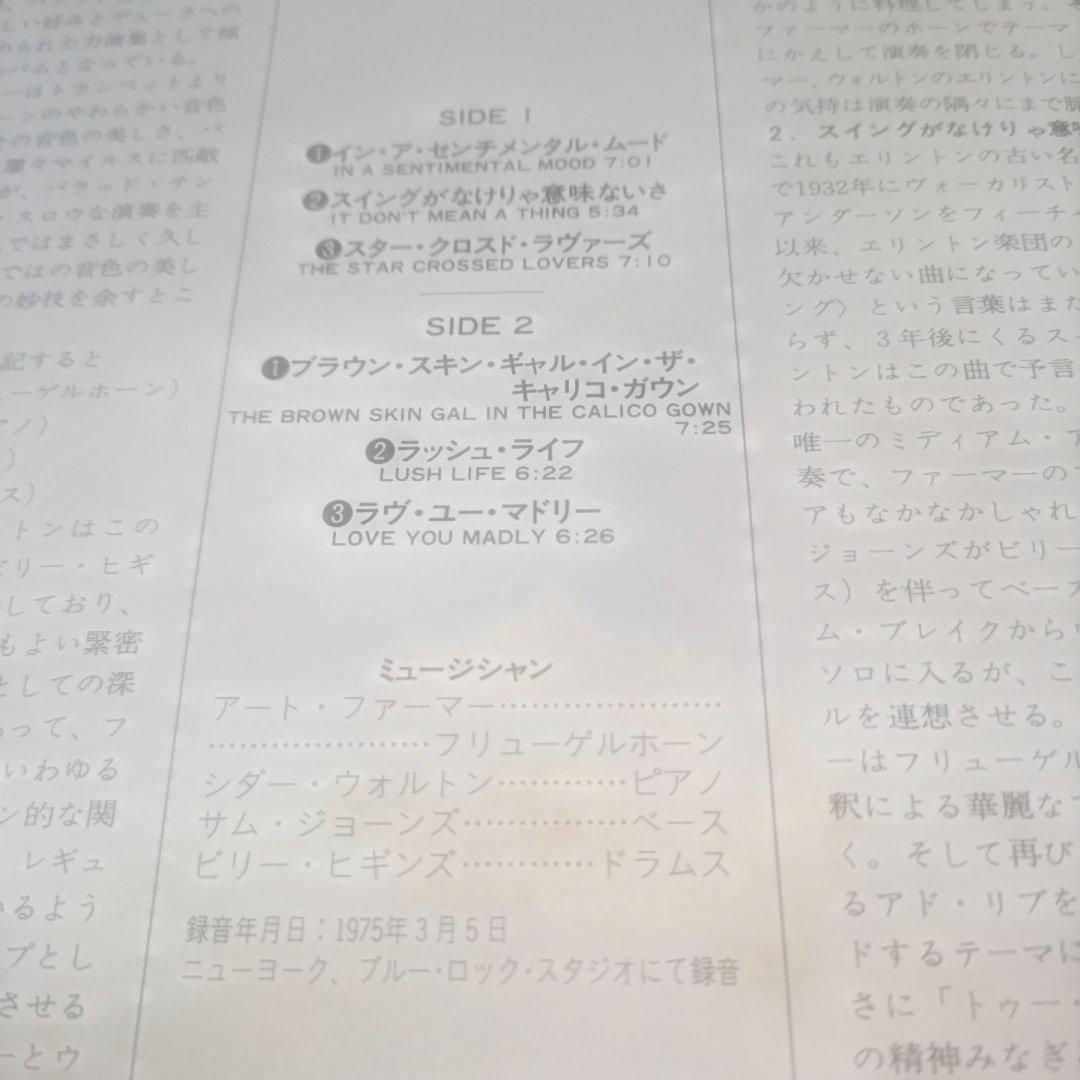 しい好みとデュークへの
められた力演集として傾
バムとなっている。
ーはトランペットより
ーンのやわらかい音色
その音色の美しさ、バ
屡々マイルスに匹敵
が、バラッド・テン
・スロウな演奏を主
ではまさしく久し
ではの音色の美し
の妙技を余すとこ
記すると
ューゲルホーン）
アノ）
）
ス）
ートンはこの
ビリー・ヒギ
しており、
もよい緊密
としての深
あって、フ
いわゆる
ン的な関
レギュ
いるよう
プとし
させる
ーとウ
SIDE 1
❶イン・ア・センチメンタル・ムード
IN A SENTIMENTAL MOOD 7:01
❷スイングがなけりゃ意味ないさ
IT DON'T MEAN A THING 5:34
❸スター・クロスド・ラヴァーズ
THE STAR CROSSED LOVERS 7:10
SIDE 2
❶ブラウン・スキン・ギャル・イン・ザ・
キャリコ・ガウン
THE BROWN SKIN GAL IN THE CALICO GOWN
7:25
❷ラッシュ・ライフ
LUSH LIFE 6:22
❸ラヴ・ユー・マドリー
LOVE YOU MADLY 6:26
ミュージシャン
アート・ファーマー……………………
……………………フリューゲルホーン
シダー・ウォルトン…………ピアノ
サム・ジョーンズ……………ベース
ビリー・ヒギンズ…………ドラムス
録音年月日：1975年3月5日
ニューヨーク、ブルー・ロック・スタジオにて録音
かのように料理してしまう。
ファーマーのホーンでテーマ
にかえして演奏を閉じる。し
マー、ウォルトンのエリントンに
の気持は演奏の隅々にまで
2．スイングがなけりゃ意
これもエリントンの古い名
で1932年にヴォーカリスト
アンダーソンをフィーチャ
以来、エリントン楽団の
欠かせない曲になってい
ング〉という言葉はまだ
らず、3年後にくるス
ントンはこの曲で予言
われたものであった。
唯一のミディアム・ア
奏で、ファーマーのフ
アもなかなかしゃれ
ジョーンズがビリー
ス）を伴ってベース
ム・ブレイクから
ソロに入るが、こ
ルを連想させる。
ーはフリューゲル
釈による華麗な
く。そして再び
るアド・リブを
ドするテーマに
さに「トゥー・
の精神みなぎ